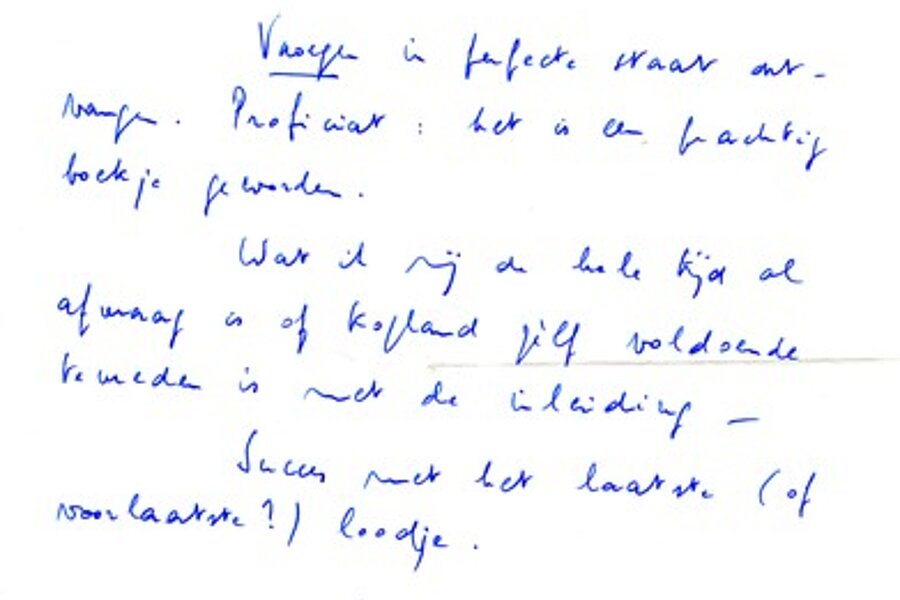 Vroege in perfecte staat ont-
vangen. Proficiat : het is een prachtig
boekje geworden.
Wat ik mij de hele tijd al
afvraag is of Kopland zelf voldoende
tevreden is met de inleiding —
Succes met het laatste (of
voorlaatste?) loodje.